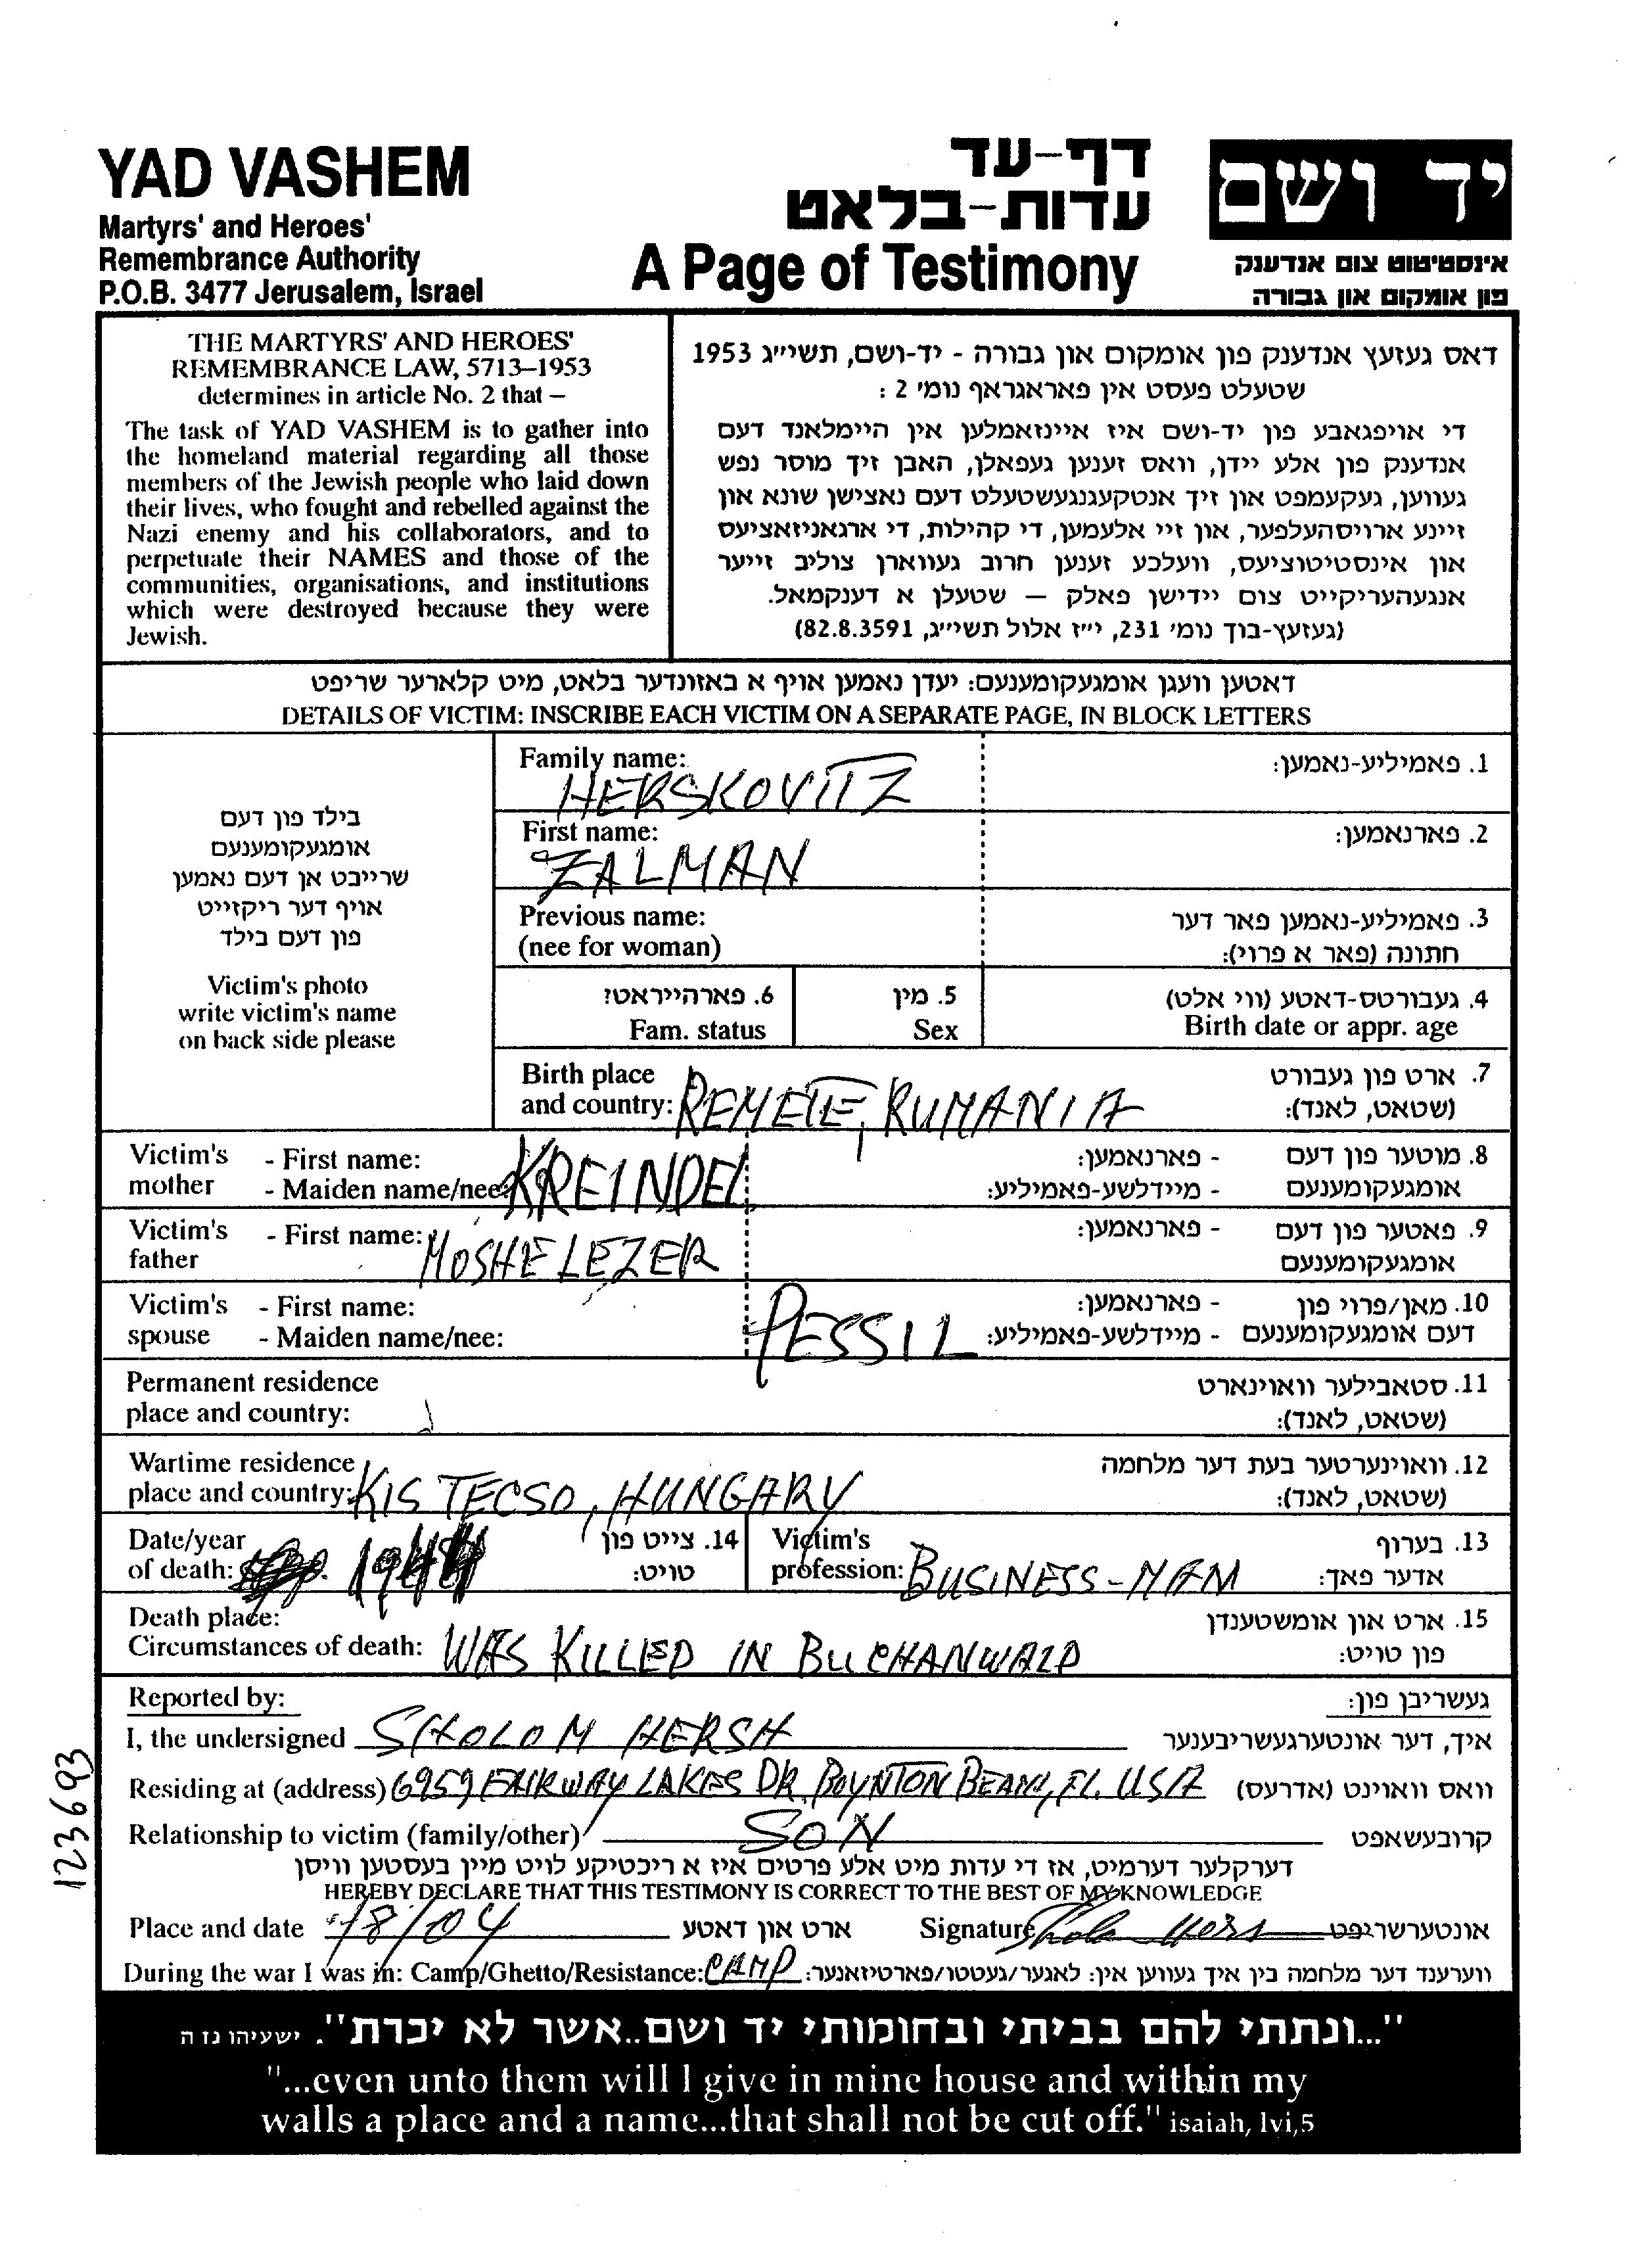 YAD VASHEM
Martyrs' and Heroes'
Remembrance Authority
P.O.B. 3477 Jerusalem, Israel
דף-עד
עדות-בלאט
A Page of Testimony
יד ושם
אינסטיטוט צום אנדענק
פון אומקום און גבורה
THE MARTYRS' AND HEROES'
REMEMBRANCE LAW, 5713–1953
determines in article No. 2 that –
The task of YAD VASHEM is to gather into
the homeland material regarding all those
members of the Jewish people who laid down
their lives, who fought and rebelled against the
Nazi enemy and his collaborators, and to
perpetuate their NAMES and those of the
communities, organisations, and institutions
which were destroyed because they were
Jewish.
דאס געזעץ אנדענק פון אומקום און גבורה - יד-ושם, תשי״ג 1953
שטעלט פעסט אין פאראגראף נומי 2 :
די אויפגאבע פון יד-ושם איז איינזאמלען אין היימלאנד דעם
אנדענק פון אלע יידן, וואס זענען געפאלן, האבן זיך מוסר נפש
געווען, געקעמפט און זיך אנטקעגנגעשטעלט דעם נאצישן שונא און
זיינע ארויסהעלפער, און זיי אלעמען, די קהילות, די ארגאניזאציעס
און אינסטיטוציעס, וועלכע זענען חרוב געווארן צוליב זייער
אנגעהעריקייט צום יידישן פאלק — שטעלן א דענקמאל.
(געזעץ-בוך נומי 231, י״ז אלול תשי״ג, 82.8.3591)
דאטען וועגן אומגעקומענעם: יעדן נאמען אויף א באזונדער בלאט, מיט קלארער שריפט
DETAILS OF VICTIM: INSCRIBE EACH VICTIM ON A SEPARATE PAGE, IN BLOCK LETTERS
בילד פון דעם
אומגעקומענעם
שרייבט אן דעם נאמען
אויף דער ריקזייט
פון דעם בילד
Victim's photo
write victim's name
on back side please
Family name: HERSKOVITZ 1. פאמיליע-נאמען:
First name: ZALMAN 2. פארנאמען:
Previous name: 3. פאמיליע-נאמען פאר דער
(nee for woman) חתונה (פאר א פרוי):
6. פארהייראט? 5. מין 4. געבורטס-דאטע (ווי אלט)
Fam. status Sex Birth date or appr. age
Birth place 7. ארט פון געבורט
and country: REMETE, RUMANIA (שטאט, לאנד):
Victim's - First name: - פארנאמען: 8. מוטער פון דעם
mother - Maiden name/nee: KREINDEL - מיידלשע-פאמיליע: אומגעקומענעם
Victim's - First name: MOSHE LEZER - פארנאמען: 9. פאטער פון דעם
father אומגעקומענעם
Victim's - First name: - פארנאמען: 10. מאן/פרוי פון
spouse - Maiden name/nee: PESSIL - מיידלשע-פאמיליע: דעם אומגעקומענעם
Permanent residence 11. סטאבילער וואוינארט
place and country: (שטאט, לאנד):
Wartime residence 12. וואוינערטער בעת דער מלחמה
place and country: KIS TECSO, HUNGARY (שטאט, לאנד):
Date/year 14. צייט פון Victim's 13. בערוף
of death: 1944 טויט: profession: BUSINESS-MAM אדער פאך:
Death place: 15. ארט און אומשטענדן
Circumstances of death: WAS KILLED IN BUCHANWALD פון טויט:
Reported by: געשריבן פון:
I, the undersigned SHOLOM HERSH איך, דער אונטערגעשריבענער
Residing at (address) 6959 FAIRWAY LAKES DR. BOYNTON BEACH, FL. USA וואס וואוינט (אדרעס)
Relationship to victim (family/other) SON קרובעשאפט
דערקלער דערמיט, אז די עדות מיט אלע פרטים איז א ריכטיקע לויט מיין בעסטען וויסן
HEREBY DECLARE THAT THIS TESTIMONY IS CORRECT TO THE BEST OF MY KNOWLEDGE
Place and date /8/04 ארט און דאטע Signature אונטערשריפט
During the war I was in: Camp/Ghetto/Resistance: CAMP ווערענד דער מלחמה בין איך געווען אין: לאגער/געטטו/פארטיזאנער:
123693
"...ונתתי להם בביתי ובחומותי יד ושם..אשר לא יכרת". ישעיהו נז ה
"...even unto them will I give in mine house and within my
walls a place and a name...that shall not be cut off." isaiah, lvi,5